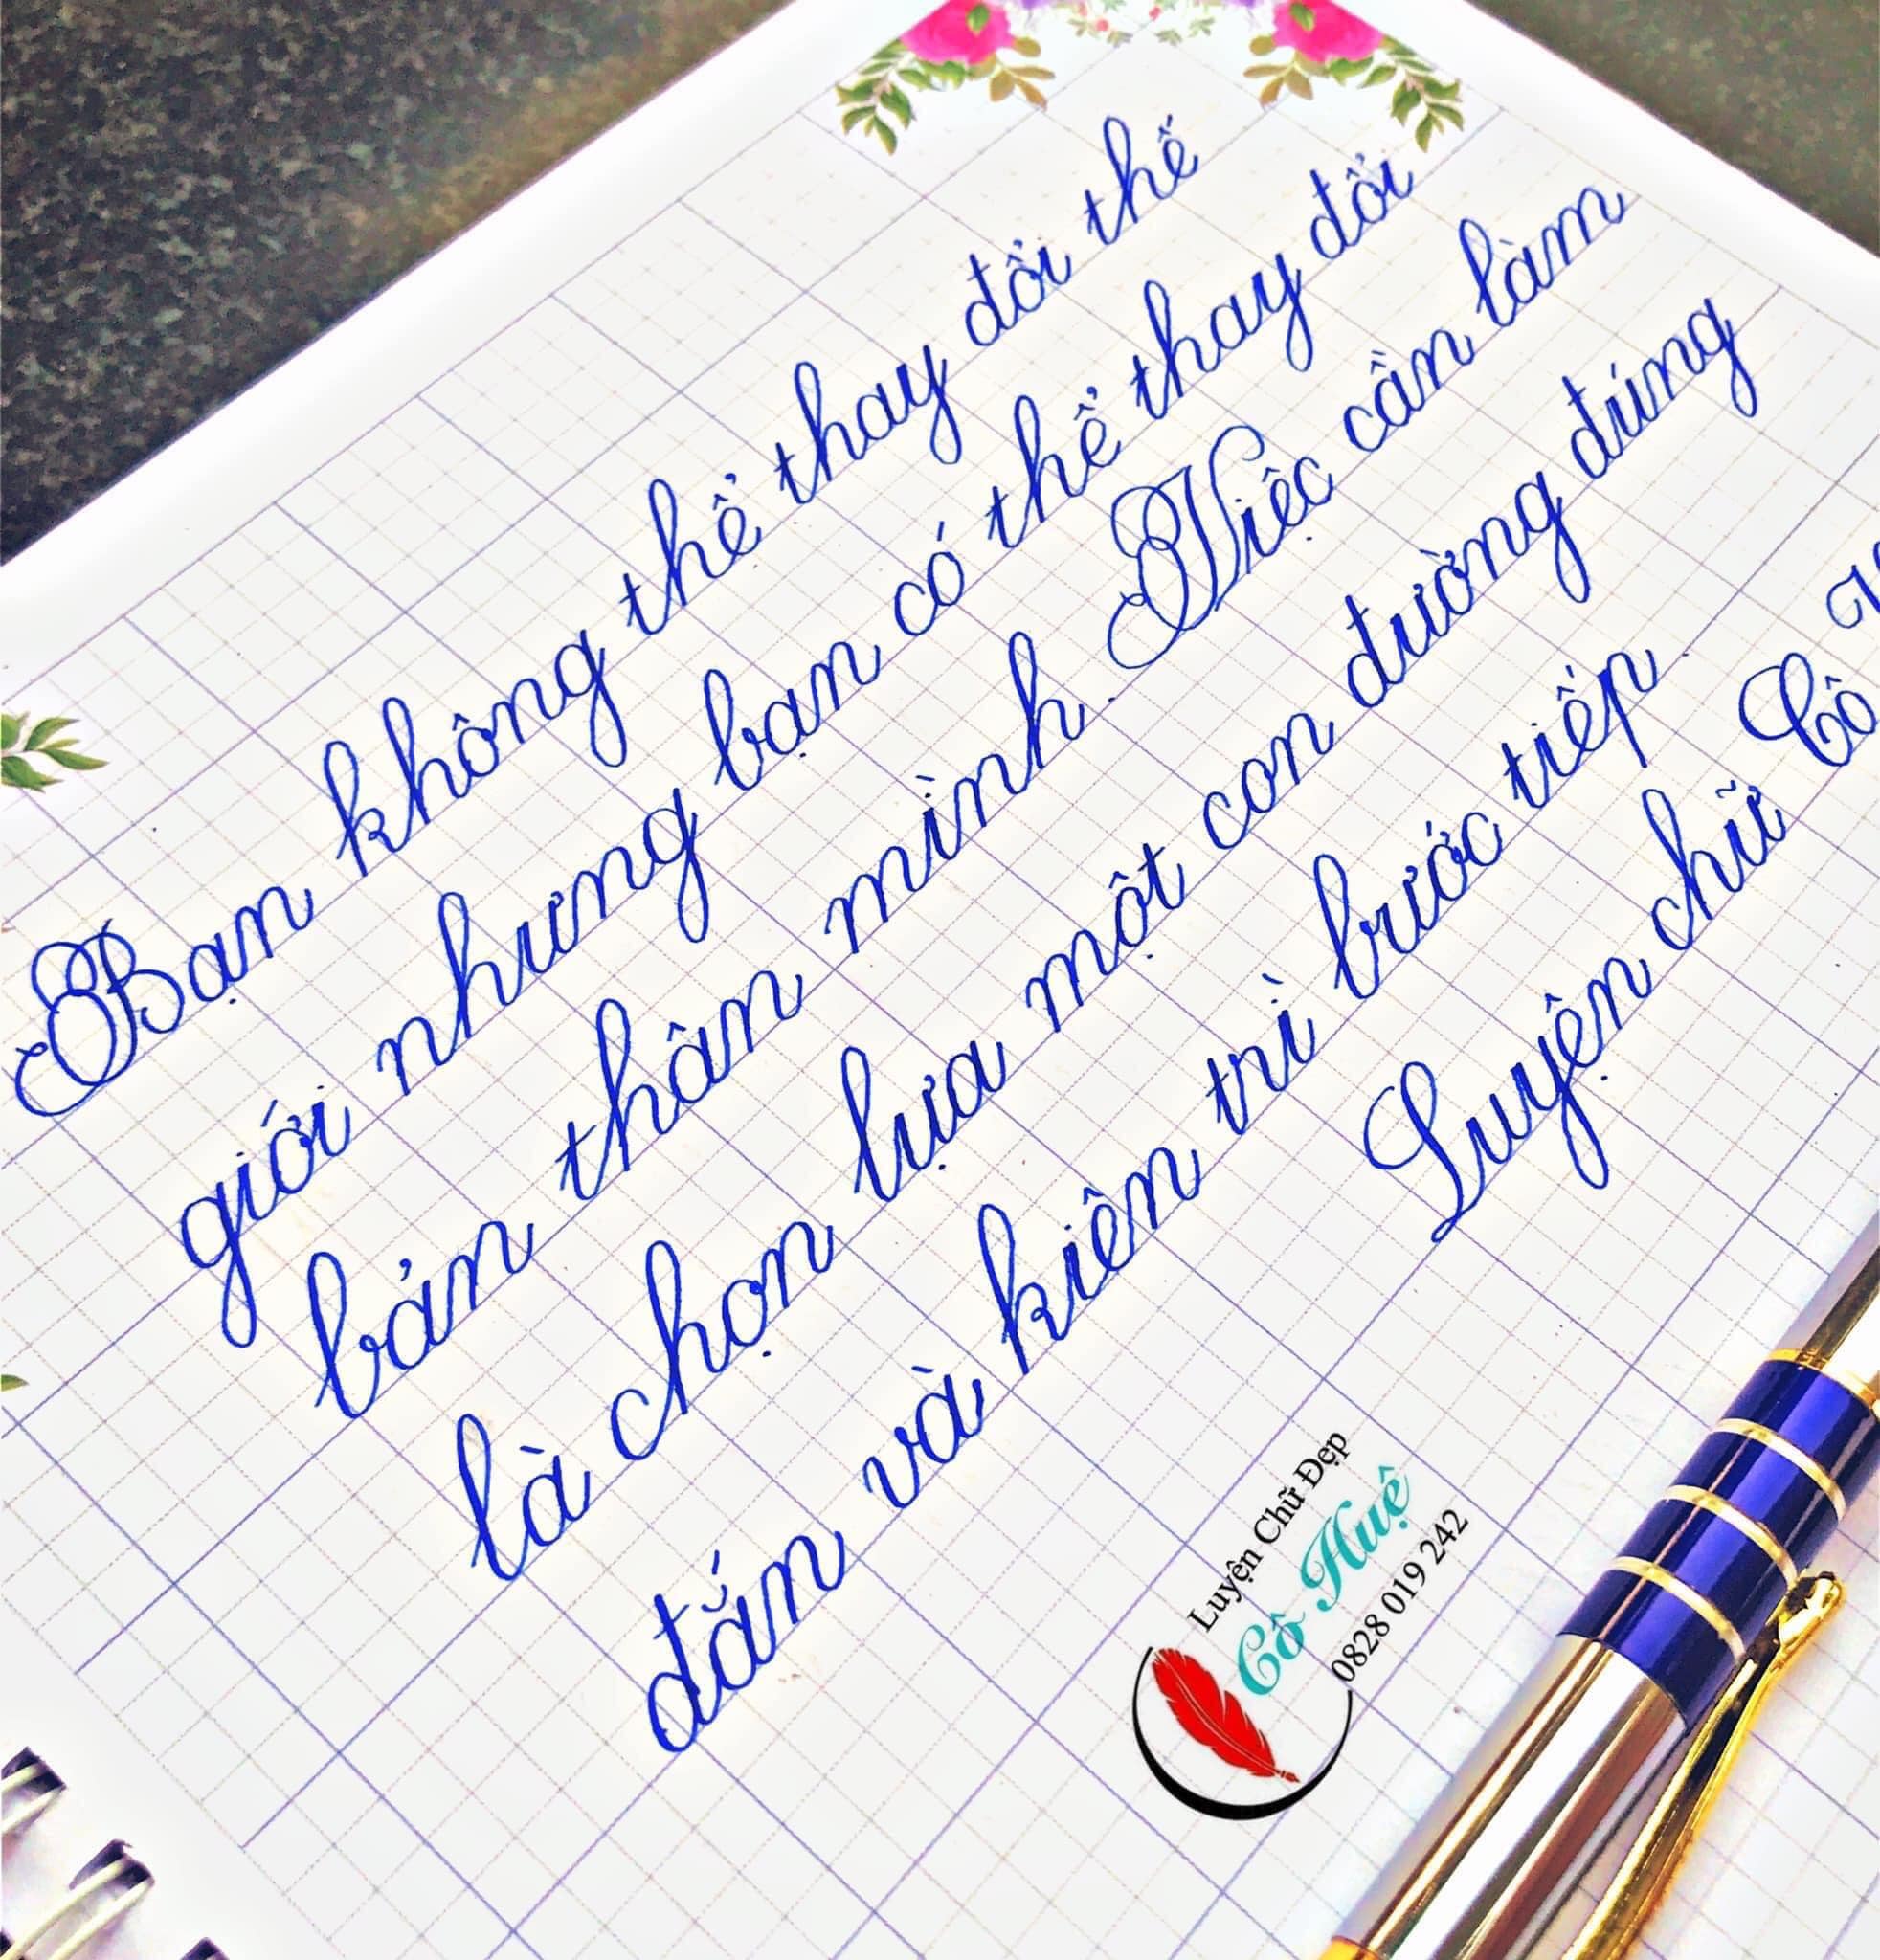 Bạn không thể thay đổi thế
giới nhưng bạn có thể thay đổi
bản thân mình. Việc cần làm
là chọn lựa một con đường đúng
đắn và kiên trì bước tiếp.
Luyện chữ Cô
Luyện Chữ Đẹp
Cô Huệ
0828 019 242